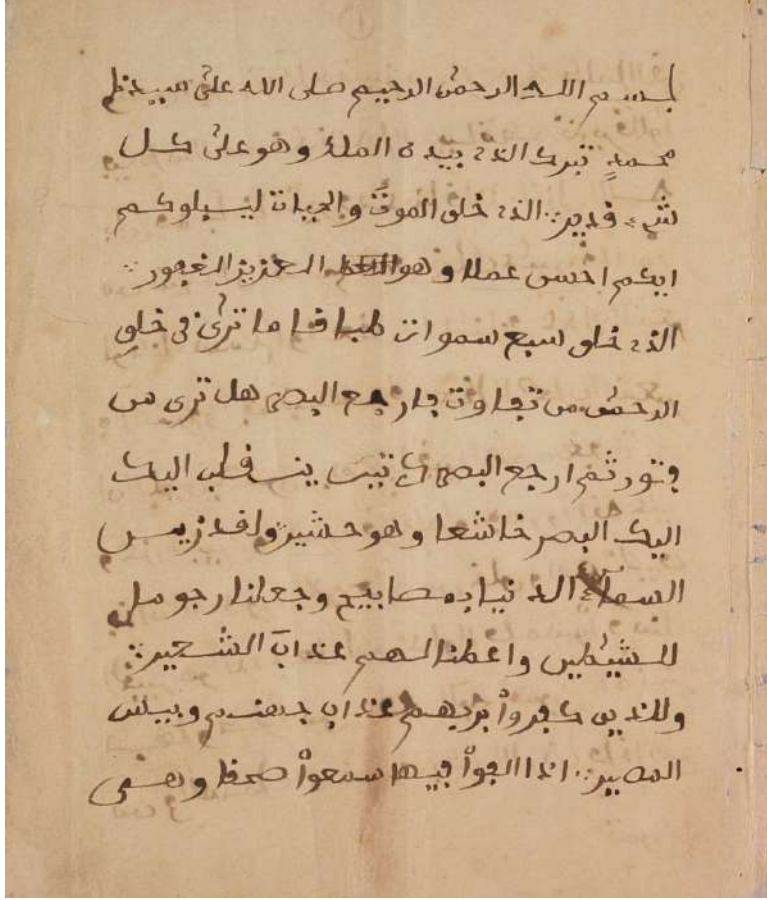 بسم الله الرحمن الرحيم صلى الله على سيدنا
محمد تبرك الذي بيده الملك وهو على كل
شيء قدير الذي خلق الموت والحيات ليبلوكم
ايكم احسن عملا وهو العزيز الغفور
الذي خلق سبع سموات طباقا ما ترى في خلق
الرحمن من تفاوت فارجع البصر هل ترى من
فتور ثم ارجع البصر ينقلب اليك
اليك البصر خاشعا وهو حشير ولقد زين
السماء الدنيا بمصابيح وجعلنا رجوما
للشيطين واعطنا لهم عذاب الشعير
وللذين كفروا بربهم عذاب جهنم وبيس
المصير اذا الفوا فيها سمعوا صحفا وهي